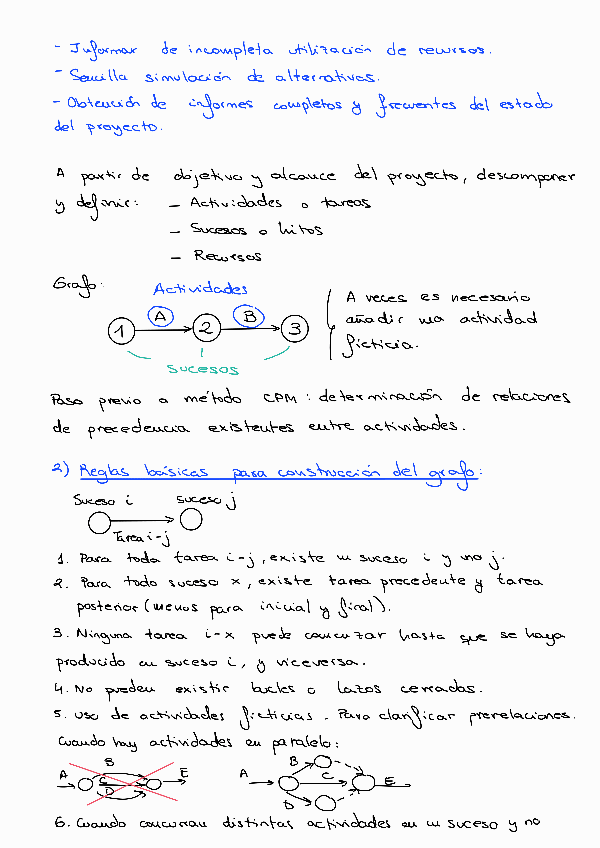 - Informar de incompleta utilización de recursos.
- Sencilla simulación de alternativas.
- Obtención de informes completos y frecuentes del estado
del proyecto.
A partir de objetivo y alcance del proyecto, descomponer
y definir: - Actividades o tareas
- Sucesos o hitos
- Recursos
Grafo:
Actividades
A B
1 2 3
Sucesos
A veces es necesario
añadir una actividad
ficticia.
Paso previo a método CPM: determinación de relaciones
de precedencia existentes entre actividades.
2) Reglas básicas para construcción del grafo:
Suceso i suceso j
Tarea i-j
1. Para toda tarea i-j, existe un suceso i y uno j.
2. Para todo suceso x, existe tarea precedente y tarea
posterior (menos para inicial y final).
3. Ninguna tarea i-x puede comenzar hasta que se haya
producido un suceso i, y viceversa.
4. No pueden existir bucles o lazos cerrados.
5. Uso de actividades ficticias. Para clarificar prerelaciones.
Cuando hay actividades en paralelo:
A B C D E
A B C D E
6. Cuando concurran distintas actividades en un suceso y no